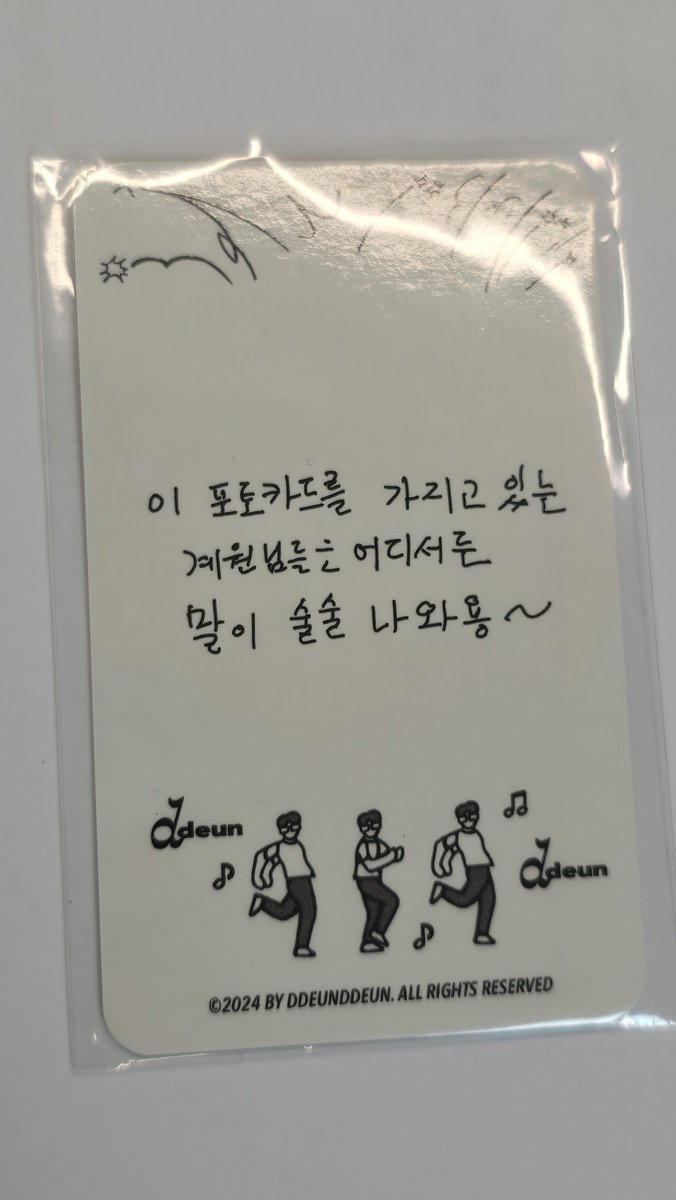 이 포토카드를 가지고 있는
계원님들은 어디서든
말이 술술 나와용~
ddeun
ddeun
©2024 BY DDEUNDDEUN. ALL RIGHTS RESERVED